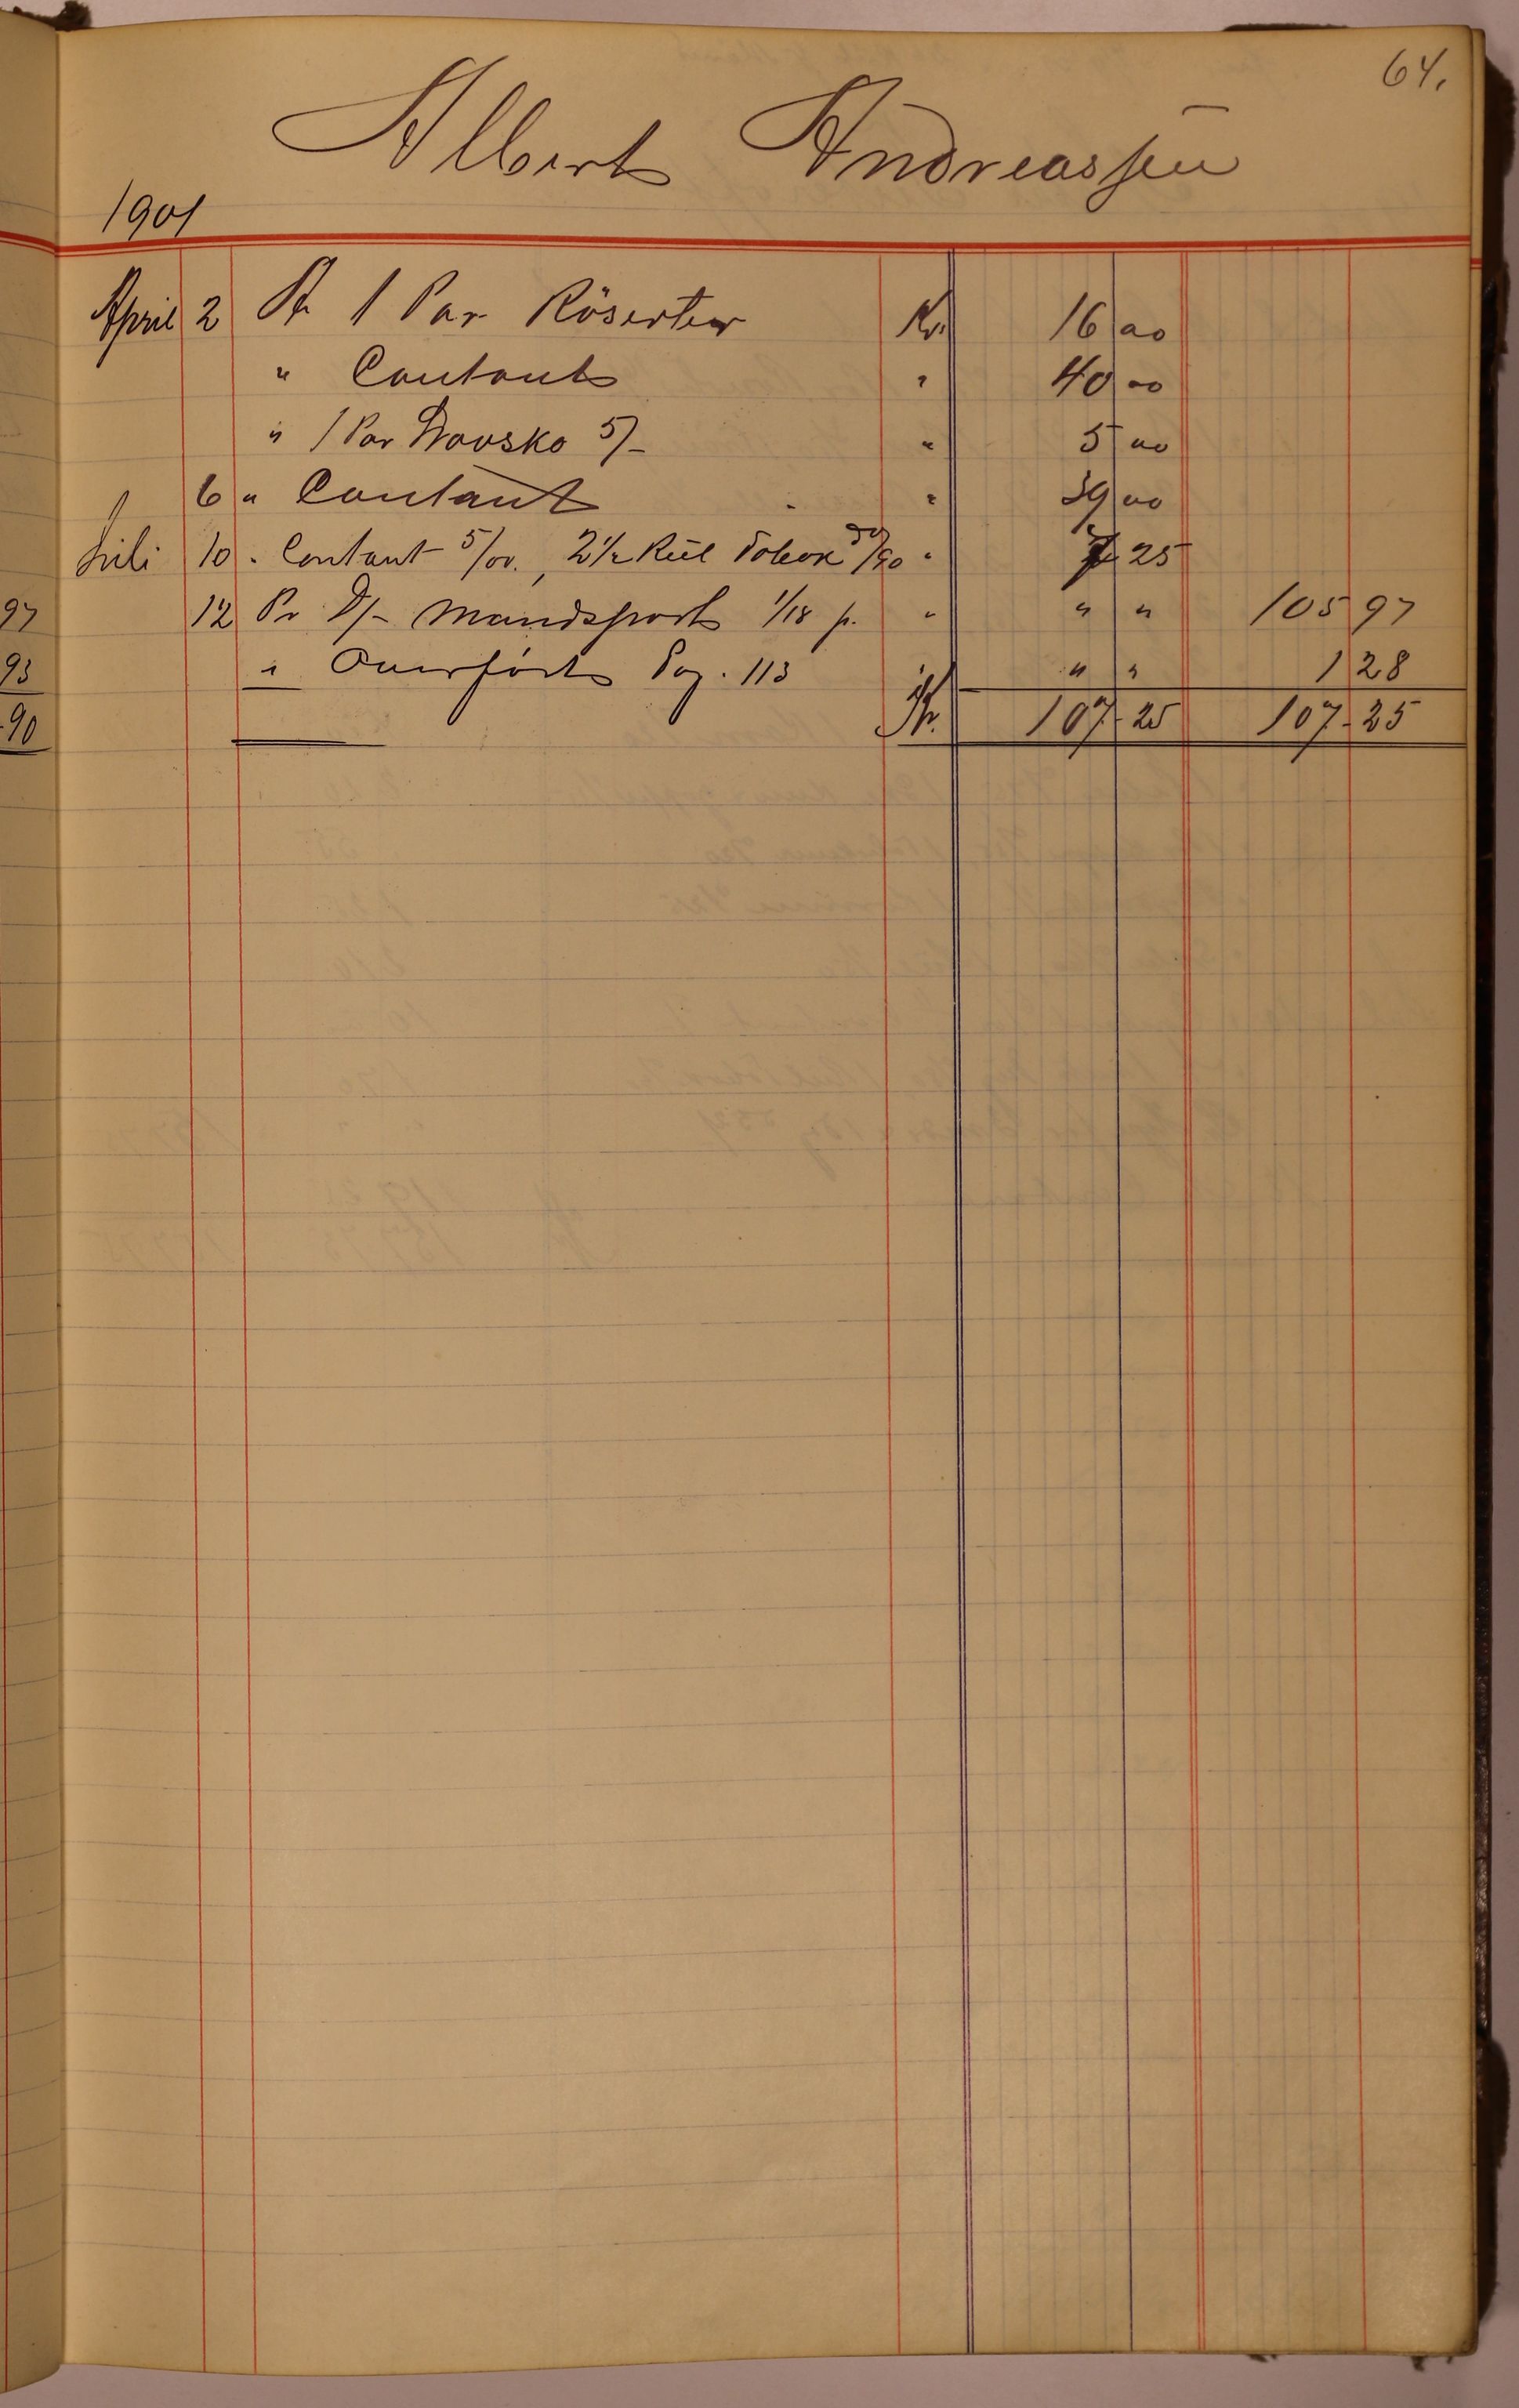 64.
Albert Andreassen
1901
April 2 At 1 Par Röserter Kr. 16 00
" Contant " 40 00
" 1 Par 5/- " 5 00
6 " Contant " 39 00
Juli 10 " Contant 5/00, 2½ Rül Tobak 90 " 7 25
12 Pr D/- Mandspart 1/18 p. " " " 105 97
" Overført Pag. 113 " " " 1 28
Kr. 107 - 25 107 - 25
97
93
90